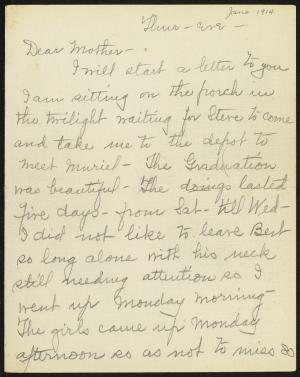 June 1914
Thurs - Eve -
Dear Mother -
I will start a letter to you
I am sitting on the porch in
the twilight waiting for Steve to come
and take me to the depot to
meet Muriel - The Graduation
was beautiful - The doings lasted
five days - from Sat - till Wed -
I did not like to leave Bert
so long alone with his neck
still needing attention so I
went up Monday morning -
The girls came up Monday
afternoon so as not to miss so